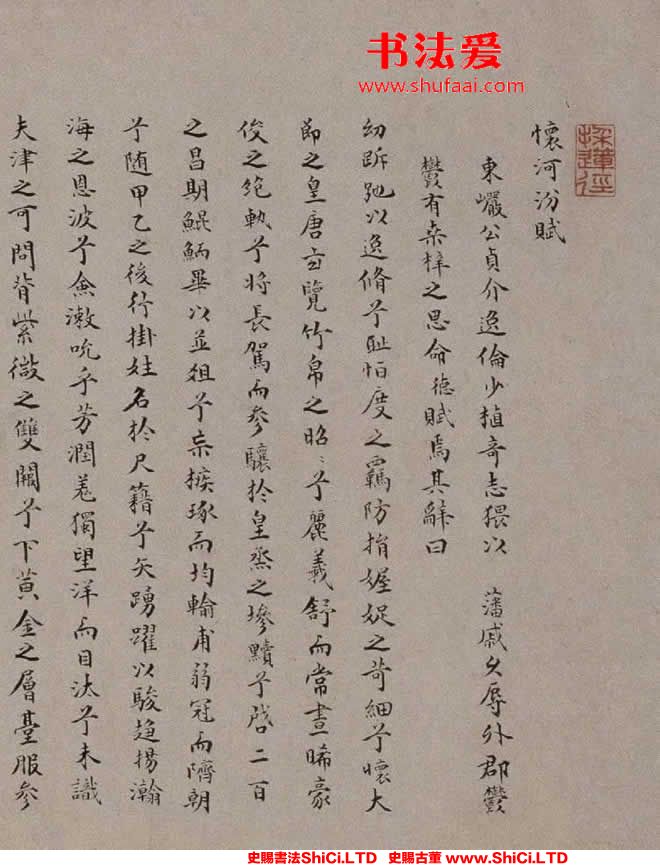 书法爱
www.shufaai.com
採蓮徑
懷河汾賦
東巖公貞介逸倫少植奇志猥以 藩戚久辱外郡鬱
鬱有桑梓之思命德賦焉其辭曰
幼跅弛以逸脩兮耻怕度之羈防捐婬娖之苛細兮懷大
節之皇唐玄覽竹帛之昭〻兮麗羲舒而常晝晞豪
俊之絶軌兮將長駕而參驤於皇烝之墋黷兮啓二百
之昌期鯤鮞畢以並俎兮亲榱琢而均輪甫弱冠而隮朝
兮随甲乙之後行掛姓名於尺籍兮矢踴躍以駿趋揚瀚
海之恩波兮僉漱吮乎芳潤羌獨望洋而目汰兮未識
夫津之可問背紫微之雙闕兮下黄金之層臺服參
史賜書法ShiCi.LTD 史賜古董 www.ShiCi.LTD